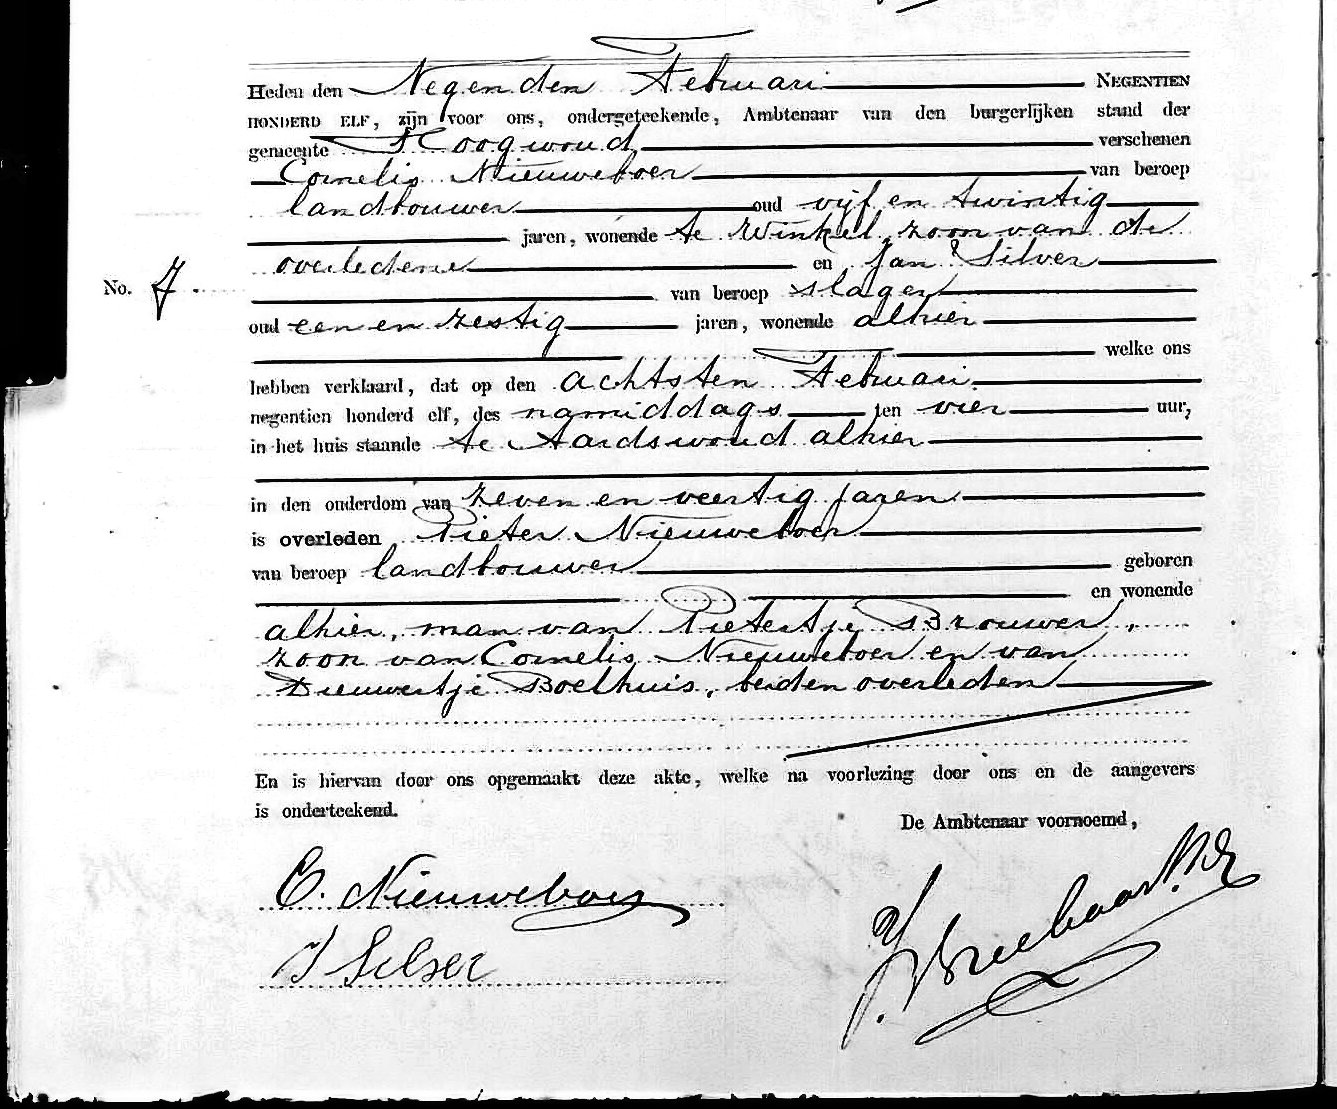 Heden den Negenden Februari NEGENTIEN
HONDERD ELF, zijn voor ons, ondergeteekende, Ambtenaar van den burgerlijken stand der
gemeente Hoogwoud verschenen
Cornelis Nieuweboer van beroep
landbouwer oud vijf en twintig
jaren, wonende te Winkel, zoon van de
overledene en Jan Silver
No. 7. van beroep slager
oud een en zestig jaren, wonende alhier
welke ons
hebben verklaard, dat op den achtsten Februari
negentien honderd elf, des namiddags ten vier uur,
in het huis staande te Aardswoud alhier
in den ouderdom van zeven en veertig jaren
is overleden Pieter Nieuweboer
van beroep landbouwer geboren
en wonende
alhier, man van Pietertje Brouwer,
zoon van Cornelis Nieuweboer en van
Dieuwertje Boelhuis, beiden overleden
En is hiervan door ons opgemaakt deze akte, welke na voorlezing door ons en de aangevers
is onderteekend.
De Ambtenaar voornoemd,
C. Nieuweboer
J Silver